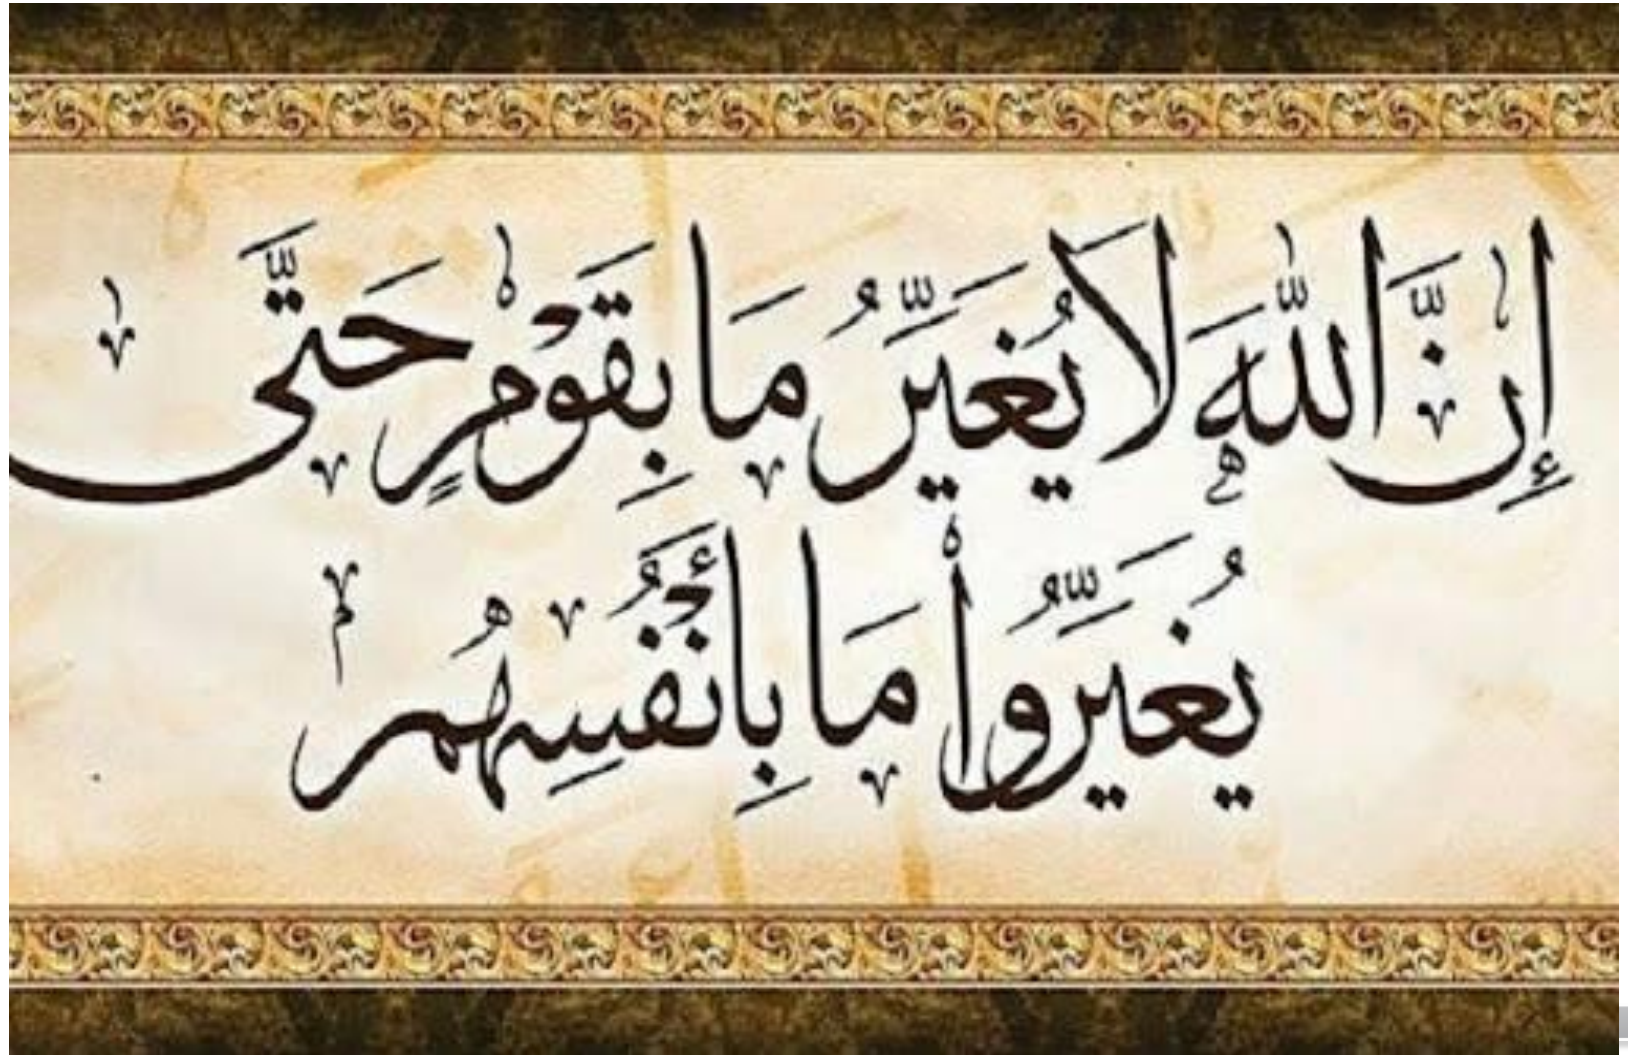 إِنَّ اللَّهَ لَا يُغَيِّرُ مَا بِقَوْمٍ حَتَّى
يُغَيِّرُوا مَا بِأَنْفُسِهِمْ